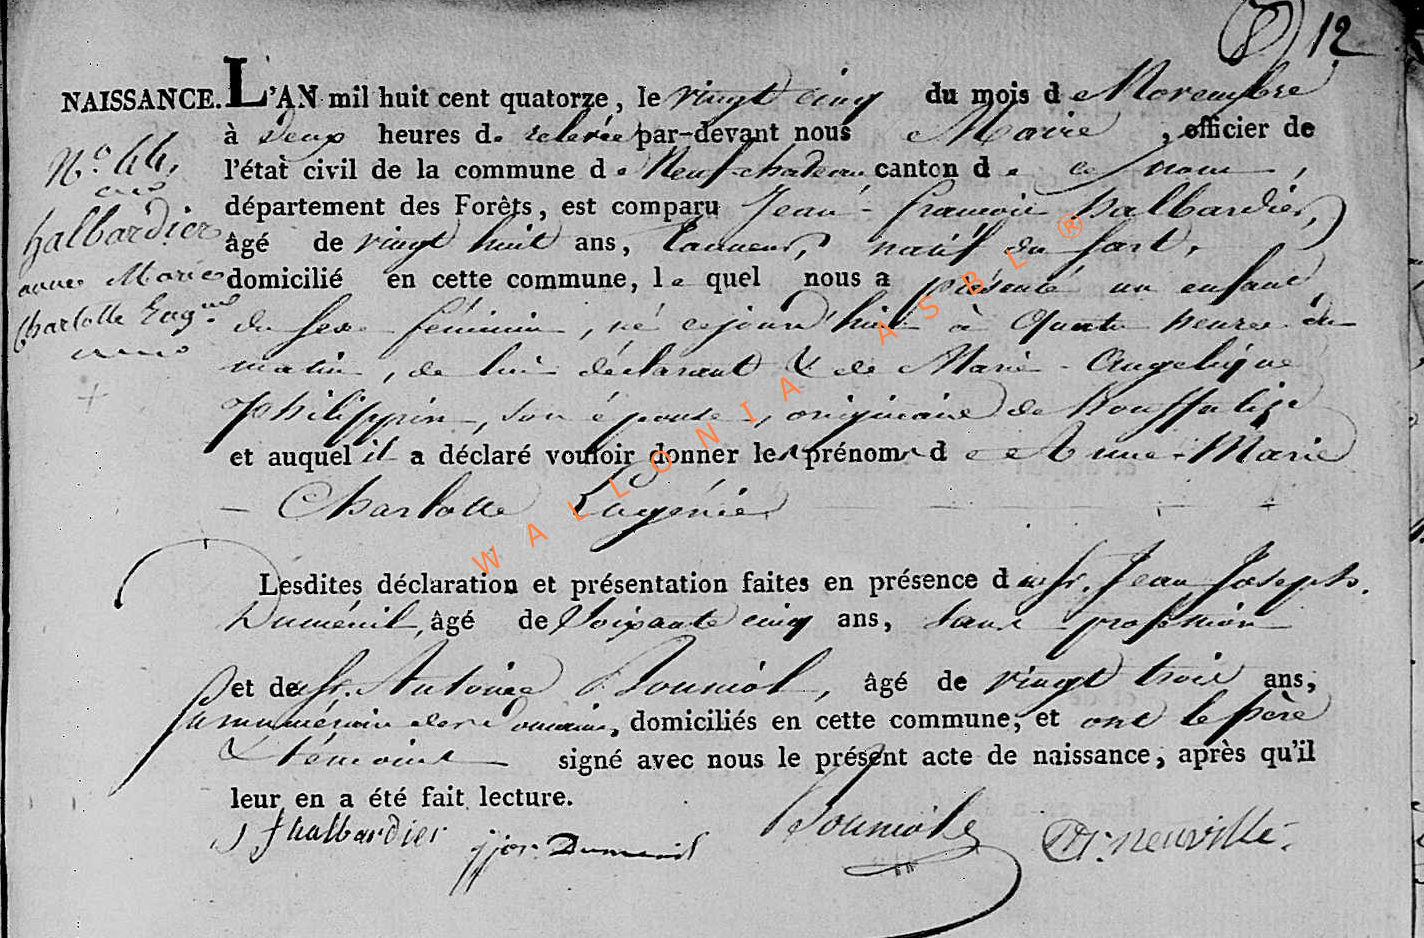 (8) 12
NAISSANCE. L'AN mil huit cent quatorze, le vingt cinq du mois de Novembre
à Deux heures de relevée par-devant nous Maire, officier de
l'état civil de la commune de Neufchateau canton de ce nom,
département des Forêts, est comparu Jean-françois halbardier,
âgé de vingt huit ans, tanneur, natif du fart,
domicilié en cette commune, le quel nous a présenté un enfant
du sexe féminin, né cejourd'huit à Quatre heures du
matin, de lui déclarant & de Marie-Angelique
Philippin, son épouse, originaire de houffalize
et auquel il a déclaré vouloir donner les prénoms de Anne-Marie
Charlotte Eugénie
Lesdites déclaration et présentation faites en présence du Sr. Jean Joseph
Duménil, âgé de Soixante cinq ans, sans profession
et de Sr. Antoine Bouniol, âgé de vingt trois ans,
Surnuméraire des Domaines, domiciliés en cette commune, et ont le père
& témoins signé avec nous le présent acte de naissance, après qu'il
leur en a été fait lecture.
N.o 44.
halbardier
anne Marie
Charlotte Eugnie
J f halbardier jjos. Dumenil Bouniol Neuville
WALLONIA ASBL ®